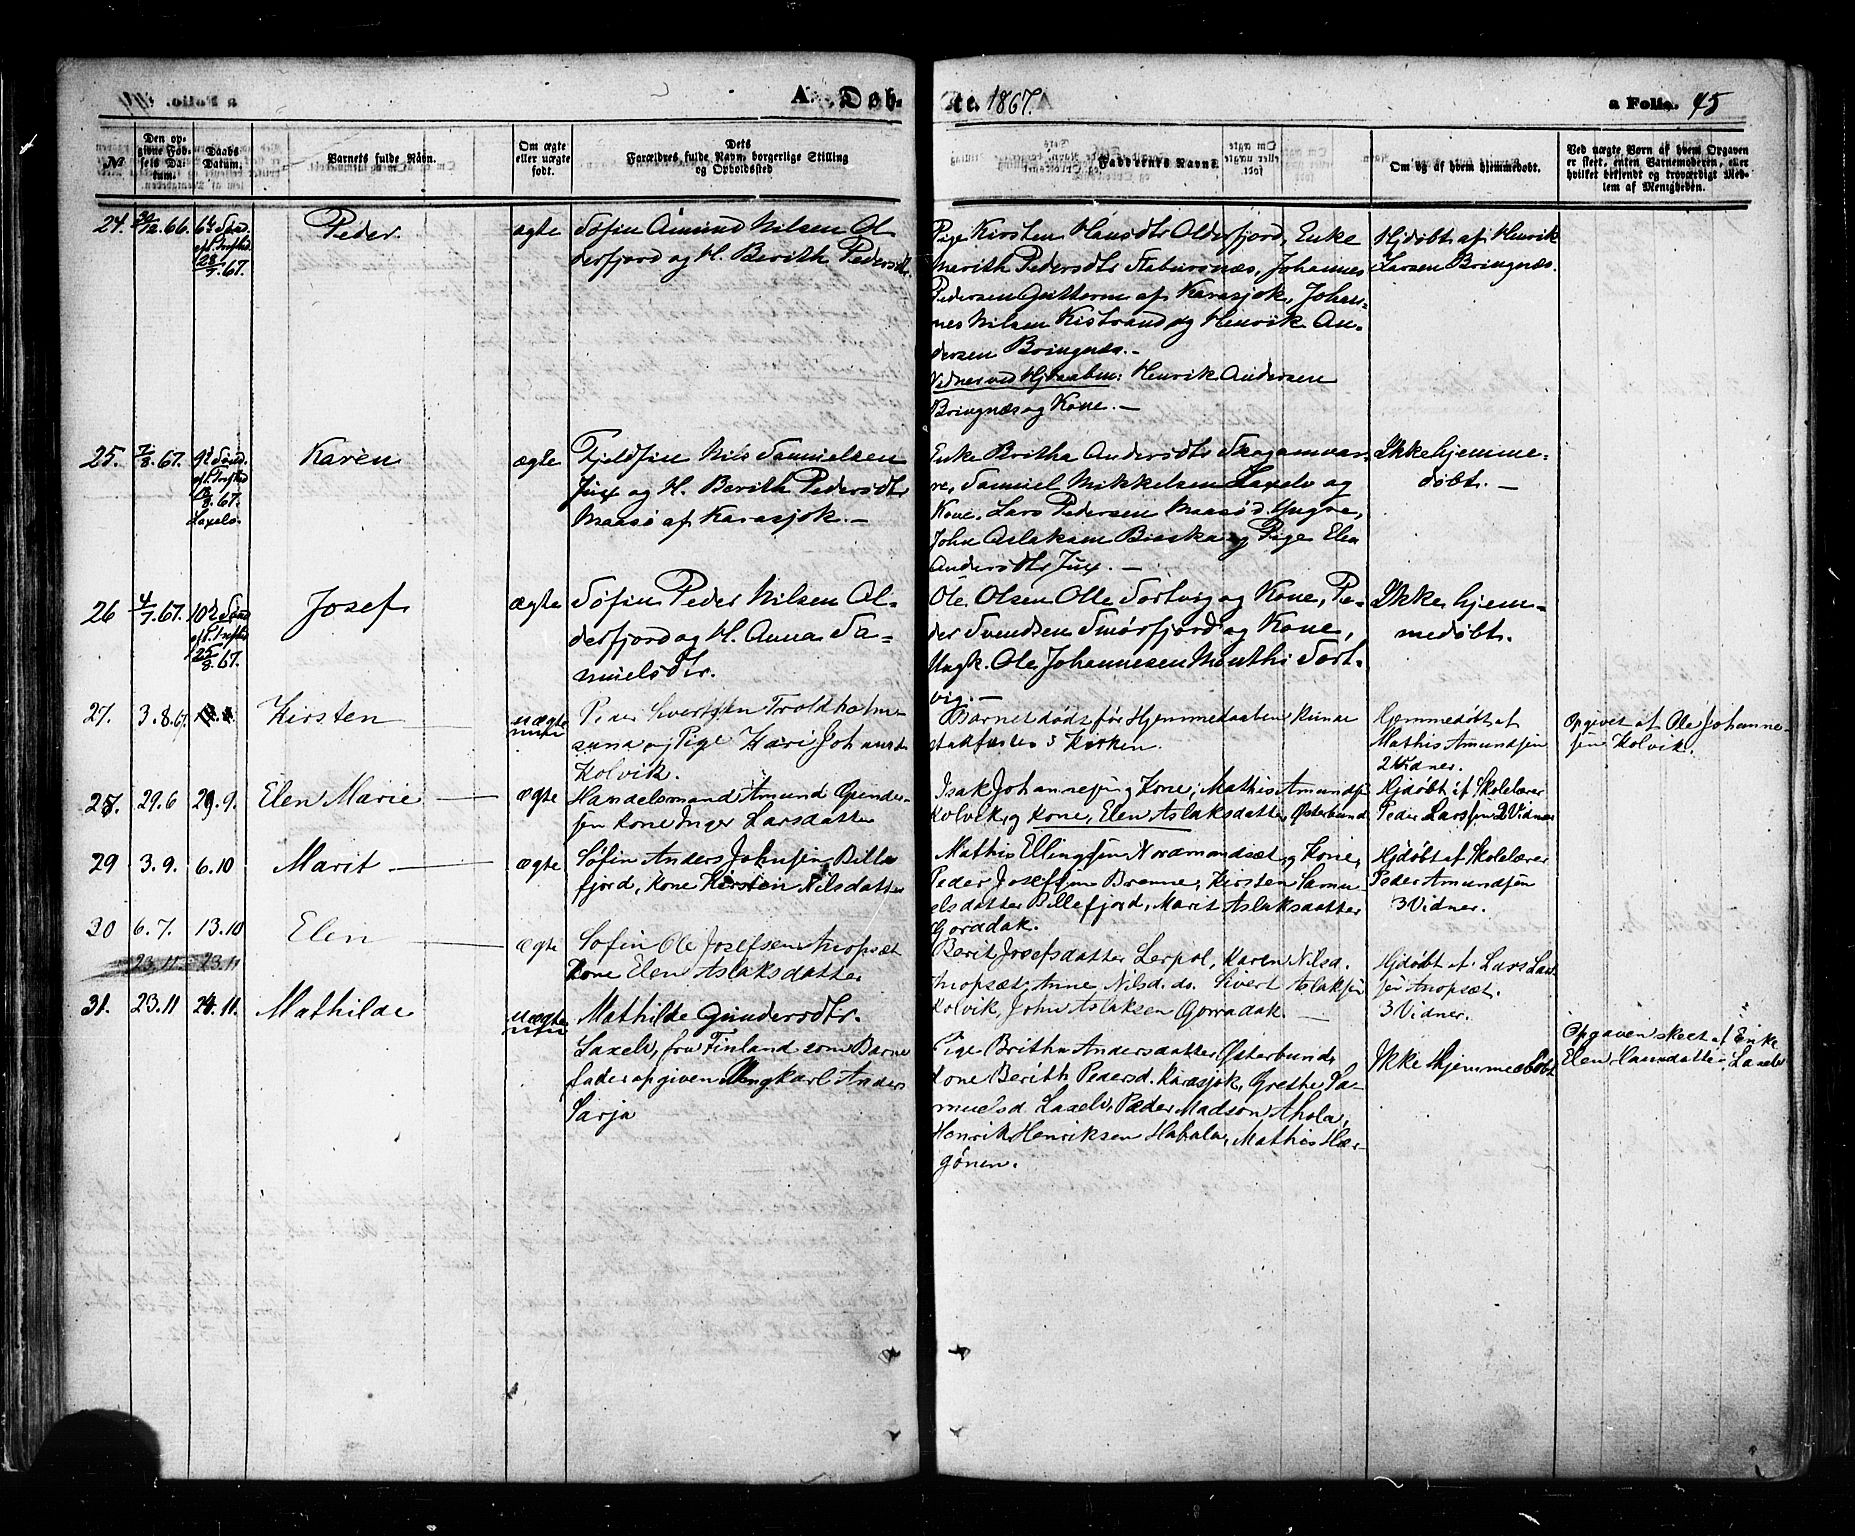 A. Døb-te. 1867. a Folio. 45
№
Den opgivne Fødsels Datum.
Daabs Datum.
Barnets fulde Navn.
Om ægte eller uægte født.
Dets Forældres fulde Navn, borgerlige Stilling og Opholdssted
Faddernes Navne.
Om og af hvem hjemmedøbt.
Ved uægte Børn af hvem Opgaven er skeet, enten Barnemoderen, eller hvilket bekjendt og troværdigt Medlem af Menigheden.
24. 30/12. 66. 6te Sønd. eft. Trefhd. 28/7. 67. Peder. ægte
Søfin Amund Nilsen Ol-
derfjord og H. Berith Pedersdtr.
Pige Kirsten Hansdtr Olderfjord, Enke
Merith Pedersdtr Stabursnæs, Johannes
Pedersen Guttorm af Karasjok, Johan-
nes Nilsen Kistrand og Henrik An-
dersen Bringnæs.-
Vidner ved Hjdaaben: Henrik Andersen
Bringnæs og Kone.-
Hjdøbt af Henrik
Larsen Bringnæs.
25. 7/3. 67. 9de Sønd. eft. Trefhd. 18/8. 67. Laxelv. Karen ægte
Fjeldfin Nils Samuelsen
Jux og H. Berith Pedersdtr
Maasø af Karasjok.-
Enke Britha Andersdtr Skoganvar-
re, Samuel Mikkelsen Laxelv og
Kone, Lars Pedersen Maasø d. Yngre,
John Aslaksen Biska og Pige Elen
Andersdtr Jux.-
Ikke hjemme-
døbt.-
26 4/7. 67. 10de Sønd. eft. Trefhd. 25/8. 67. Josef ægte
Søfin Peder Nilsen Ol-
derfjord og H. Anna Sa-
muelsdtr.
Ole Olsen Olle Sortvig og Kone, Pe-
der Svendsen Smørfjord og Kone,
Ungk. Ole Johannesen Menthi Sort-
vig.-
Ikke hjem-
medøbt.
27. 3.8.67. Kirsten uægte
Peder Sivertsen Troldholm-
sund og Pige Kari Johannsd
Kolvik.
Barnet døds før Hjemmedaaben kunne
stadfæstes i Kirken.
Hjemmedøbt af
Mathis Amundsen
2 Vidner.
Opgivet af Ole Johanne-
sen Kolvik.
28. 29.6 29.9. Elen Marie ægte
Handelsmand Amund Gunder-
sen Kone Inger Larsdatter
Isak Johannesen og Kone, Mathis Amundsen
Kolvik og Kone, Elen Aslaksdatter Østerbund
Hjdøbt af Skolelærer
Peder Larssen 2 Vidner
29 3.9. 6.10 Marit ægte
Søfin Anders Johnsen Bille
fjord, Kone Kirsten Nilsdatter
Mathis Ellingsen Nordmandsæt og Kone,
Peder Josefsen Brenne, Kirsten Samu
elsdatter Billefjord, Marit Aslaksdatter
Goradak.
Hjdøbt af Skolelærer
Peder Amundsen
3 Vidner.
30 6.7. 13.10 Elen ægte
23.11. 23.11
Søfin Ole Josefsen Anopsæt
Kone Elen Aslaksdatter
Berit Josefsdatter Lerpol, Karen Nilsd.
Anopsæt, Anne Nilsd. ds. Sivert Aslaksen
Kolvik, John Aslaksen Gorradak.
Hjdøbt af Lars Lar
sen Anopsæt.
3 Vidner.
31. 23.11 24.11. Mathilde uægte
Mathilde Gundersdtr.
Laxelv, fra Finland som Barne
fader opgiven Ungkarl Anders
Sarja
Pige Britha Andersdatter Østerbund,
Kone Berith Pedersd. Karasjok, Grethe Sa-
muelsd Laxelv, Peder Madson Ahola,
Henrik Henriksen Habala, Mathis Hær-
gönen.
Ikke Hjemmedøbt
Opgaven skeet af Enke
Elen Larsdatter, Laxelv